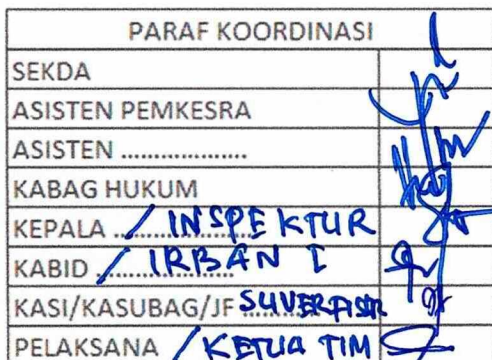 PARAF KOORDINASI
SEKDA
ASISTEN PEMKESRA
ASISTEN ...................
KABAG HUKUM
KEPALA ... / INSPEKTUR
KABID / IRBAN I
KASI/KASUBAG/JF
PELAKSANA / KETUA TIM